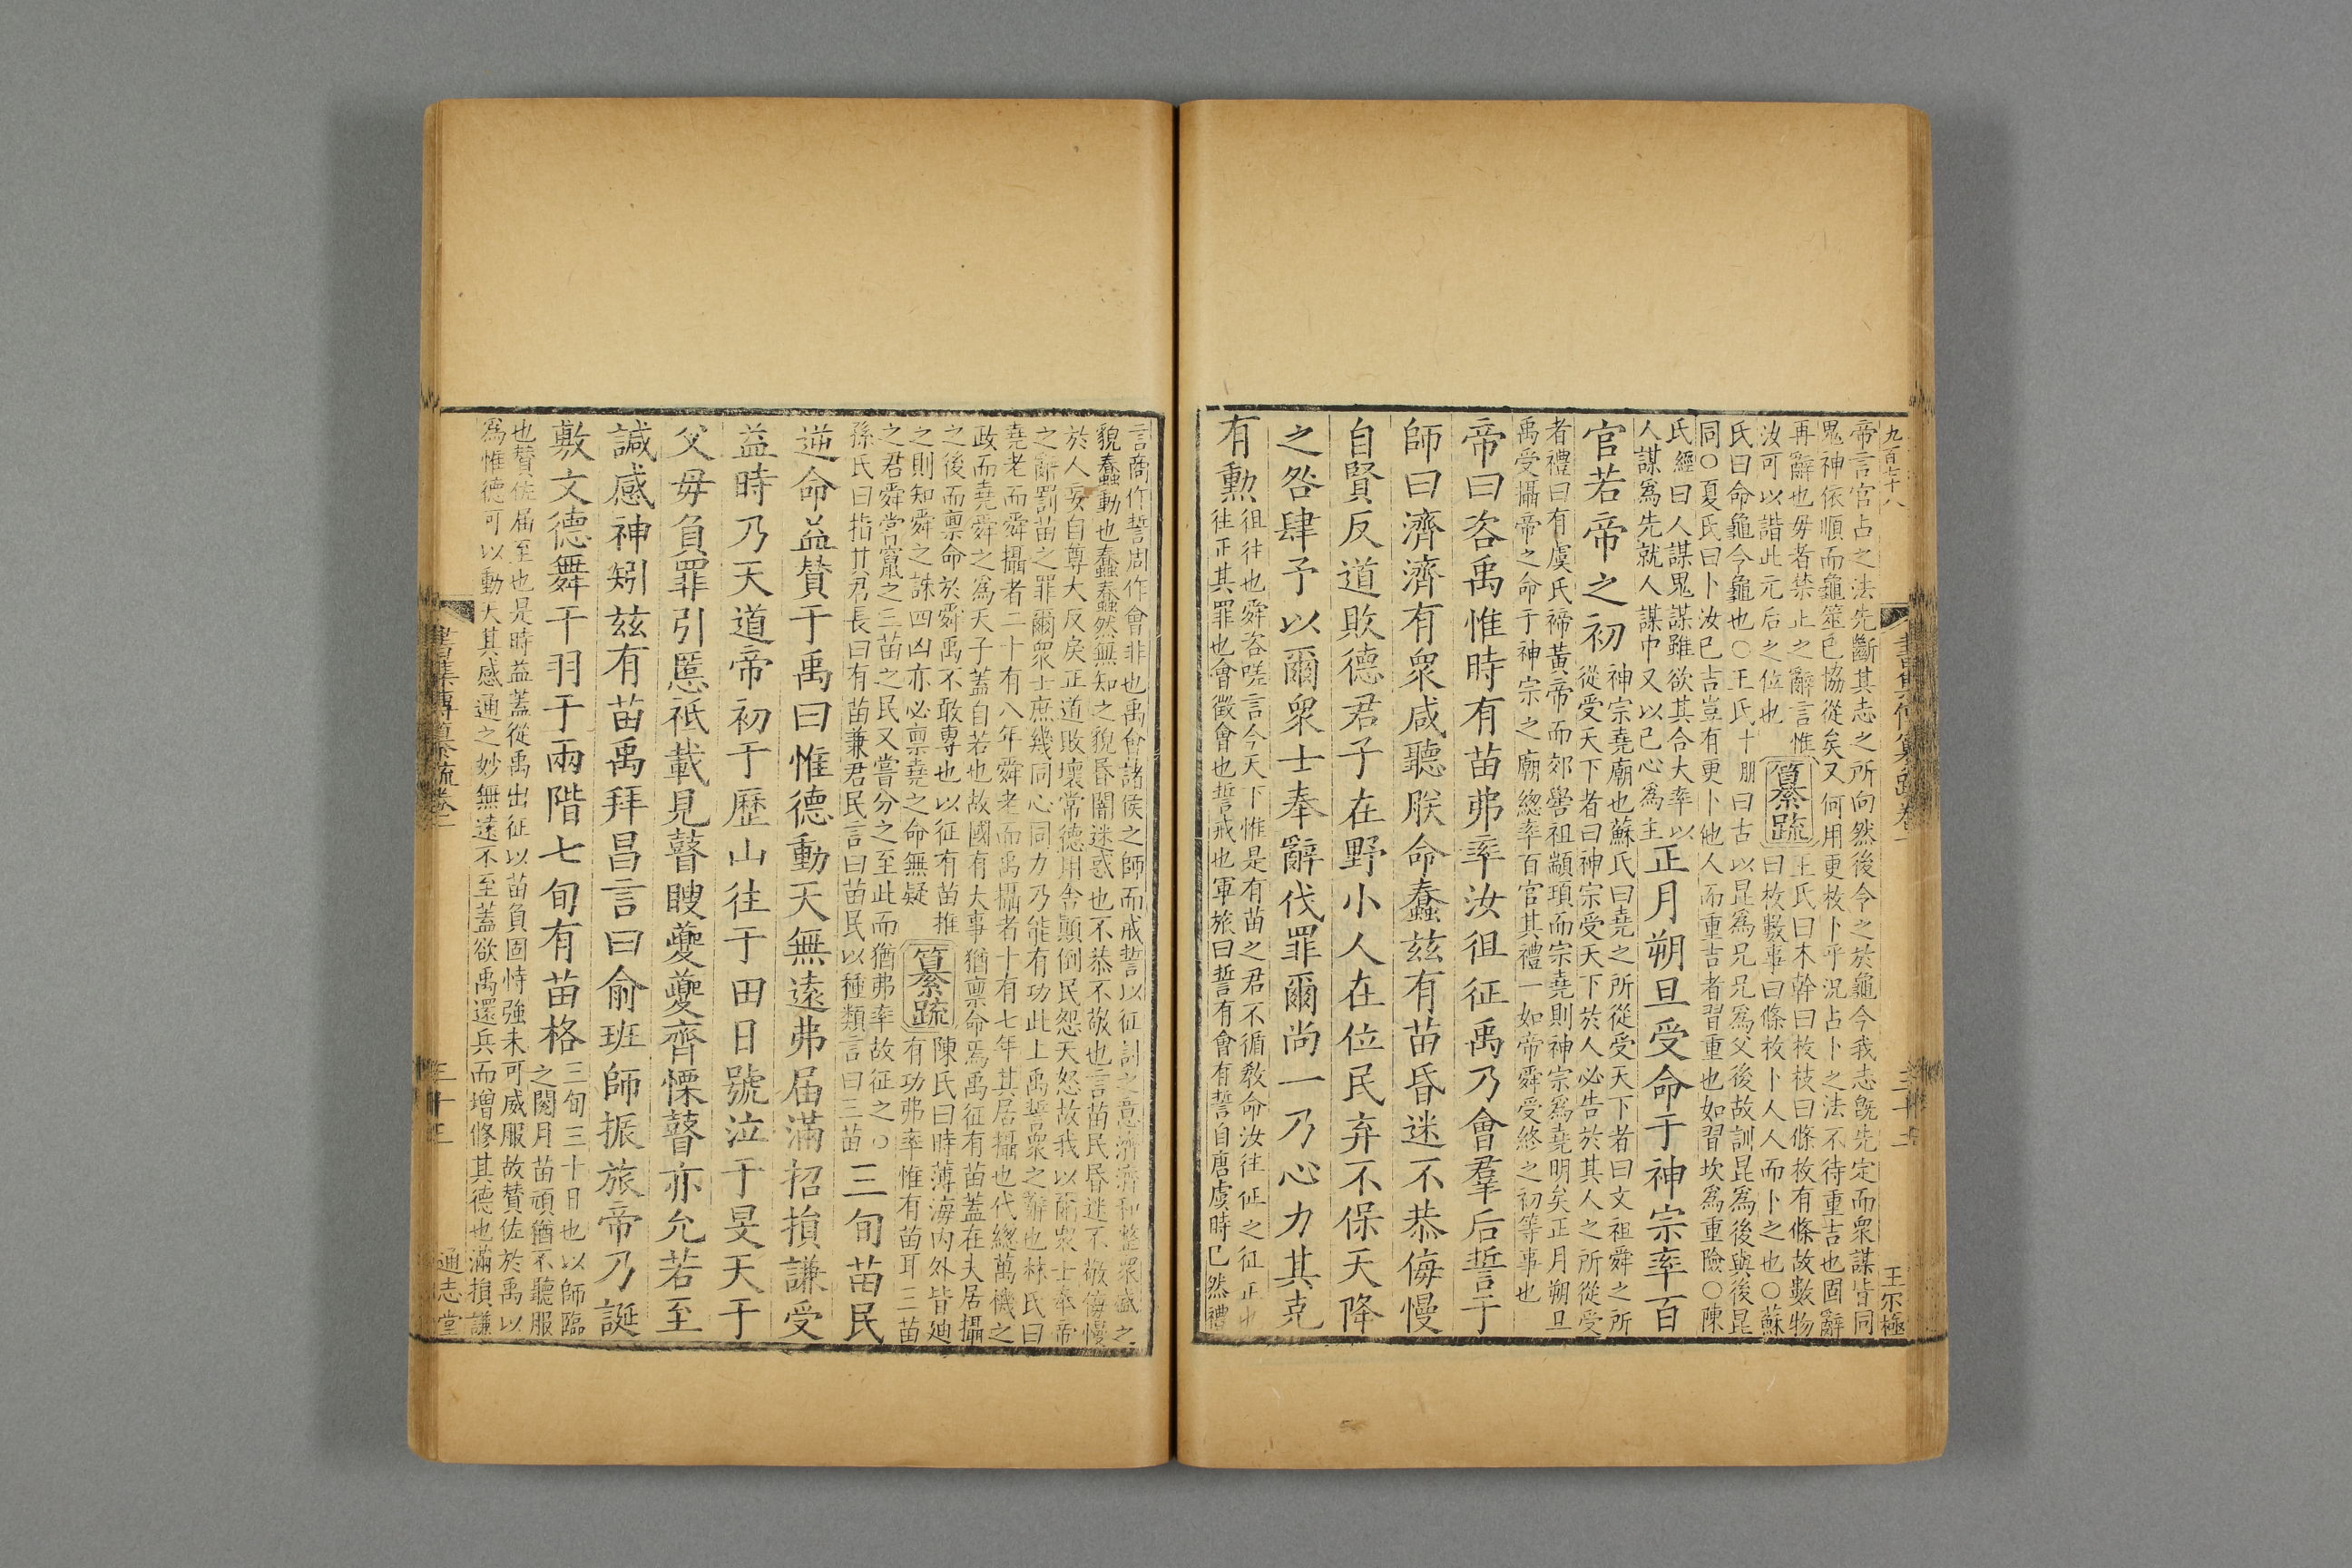 九百七十八
王尒極
帝言官占之法先斷其志之所向然後令之於龜今我志旣先定而衆謀皆同
鬼神依順而龜筮已協從矣又何用更枚卜乎況占卜之法不待重吉也固辭
再辭也毋者禁止之辭言惟
汝可以諧此元后之位也
纂疏
王氏曰木幹曰枚枝曰條枚有條故數物
曰枚數事曰條枚卜人人而卜之也○蘇
氏曰命龜令龜也○王氏十朋曰古以昆爲兄兄爲父後故訓昆爲後與後昆
同○夏氏曰卜汝已吉豈有更卜他人而重吉者習重也如習坎爲重險○陳
氏經曰人謀鬼謀雖欲其合大率以
人謀爲先就人謀中又以己心爲主
正月朔旦受命于神宗率百
官若帝之初
神宗堯廟也蘇氏曰堯之所從受天下者曰文祖舜之所
從受天下者曰神宗受天下於人必告於其人之所從受
者禮曰有虞氏禘黃帝而郊嚳祖顓頊而宗堯則神宗爲堯明矣正月朔旦
禹受攝帝之命于神宗之廟總率百官其禮一如帝舜受終之初等事也
帝曰咨禹惟時有苗弗率汝徂征禹乃會羣后誓于
師曰濟濟有衆咸聽朕命蠢兹有苗昏迷不恭侮慢
自賢反道敗德君子在野小人在位民弃不保天降
之咎肆予以爾衆士奉辭伐罪爾尚一乃心力其克
有勳
徂往也舜咨嗟言今天下惟是有苗之君不循敎命汝往征之征正也
往正其罪也會徵會也誓戒也軍旅曰誓有會有誓自唐虞時已然禮
言商作誓周作會非也禹會諸侯之師而戒誓以征討之意濟濟和整衆盛之
貌蠢動也蠢蠢然無知之貌昏闇迷惑也不恭不敬也言苗民昏迷不敬侮慢
於人妄自尊大反戾正道敗壞常德用舍顚倒民怨天怒故我以爾衆士奉帝
之辭罰苗之罪爾衆士庶幾同心同力乃能有功此上禹誓衆之辭也林氏曰
堯老而舜攝者二十有八年舜老而禹攝者十有七年其居攝也代總萬機之
政而堯舜之爲天子蓋自若也故國有大事猶禀命焉禹征有苗蓋在夫居攝
之後而禀命於舜禹不敢專也以征有苗推
之則知舜之誅四凶亦必禀堯之命無疑
纂疏
陳氏曰時薄海內外皆廸
有功弗率惟有苗耳三苗
之君舜嘗竄之三苗之民又嘗分之至此而猶弗率故征之○
孫氏曰指其君長曰有苗兼君民言曰苗民以種類言曰三苗
三旬苗民
逆命益賛于禹曰惟德動天無遠弗届滿招損謙受
益時乃天道帝初于歷山往于田日號泣于旻天于
父毋負罪引慝祗載見瞽瞍夔夔齊慄瞽亦允若至
諴感神矧兹有苗禹拜昌言曰俞班師振旅帝乃誕
敷文德舞干羽于兩階七旬有苗格
三旬三十日也以師臨
之閱月苗頑猶不聽服
也賛佐届至也是時益蓋從禹出征以苗負固恃強未可威服故賛佐於禹以
爲惟德可以動天其感通之妙無遠不至蓋欲禹還兵而增修其德也滿損謙
書集傳纂疏卷一
三十三
通志堂